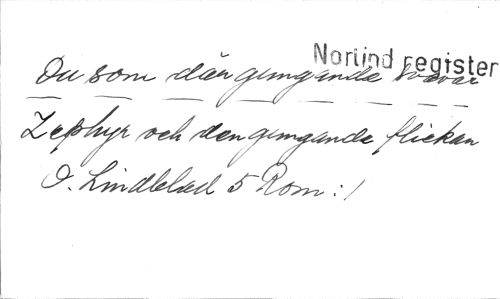 Norlind register
Du som där gungande svävar
Zephyr och den gungande flickan
O. Lindblad 5 Rom :/